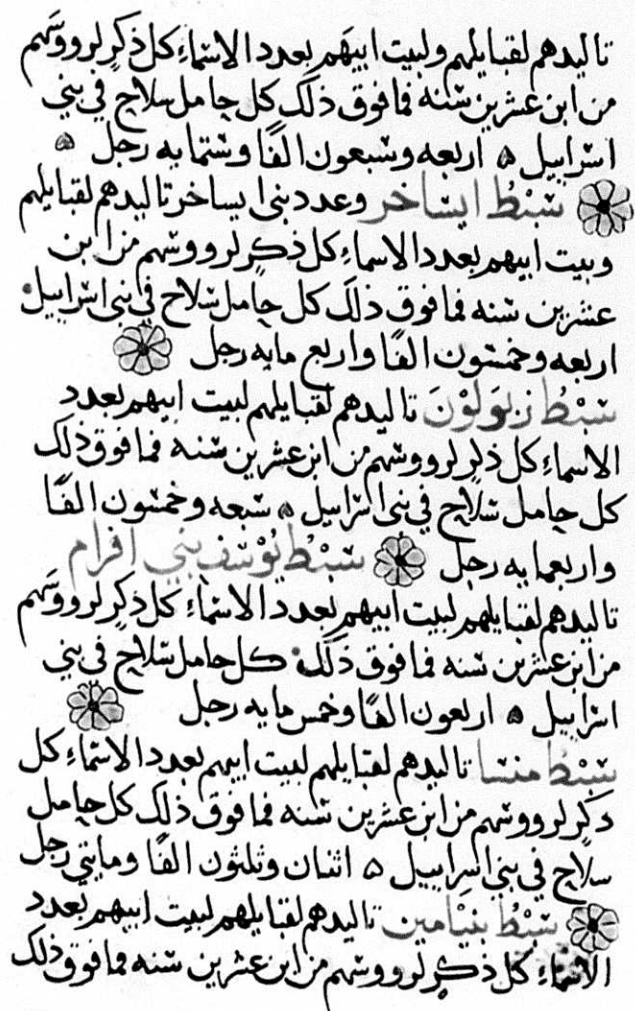 تاليدهم لقبايلهم ولبيت ابيهم بعدد الاسماء كل ذكر لرووسهم
من ابن عشرين سنه فما فوق ذلك كل حامل سلاح في بني
اسرابيل ۵ اربعه وسبعون الفًا وستمايه رجل ۵
سبط ايساخر وعدد بني ايساخر تاليدهم لقبايلهم
وبيت ابيهم بعدد الاسماء كل ذكر لرووسهم من ابن
عشرين سنه فما فوق ذلك كل حامل سلاح في بني اسراييل
اربعه وخمسون الفًا واربع مايه رجل
سبط زبولون تاليدهم لقبايلهم لبيت ابيهم بعدد
الاسماء كل ذكر لرووسهم من ابن عشرين سنه فما فوق ذلك
كل حامل سلاح في بني اسراييل ۵ سبعه وخمسون الفًا
واربعمايه رجل سبط يوسف بني افرام
تاليدهم لقبايلهم لبيت ابيهم بعدد الاسماء كل ذكر لرووسهم
من ابن عشرين سنه فما فوق ذلك كل حامل سلاح في بني
اسراييل ۵ اربعون الفًا وخمس مايه رجل
سبط منسا تاليدهم لقبايلهم لبيت ابيهم بعدد الاسماء كل
ذكر لرووسهم من ابن عشرين سنه فما فوق ذلك كل حامل
سلاح في بني اسراييل ۵ اثنان وثلثون الفًا ومايتي رجل
سبط بنيامين تاليدهم لقبايلهم لبيت ابيهم بعدد
الاسماء كل ذكر لرووسهم من ابن عشرين سنه فما فوق ذلك